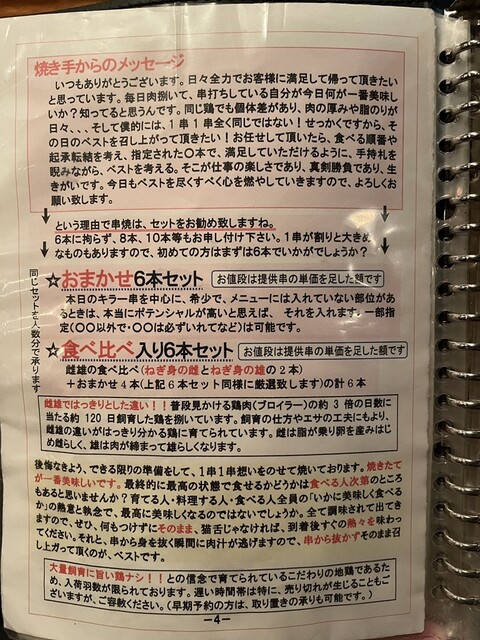 焼き手からのメッセージ
いつもありがとうございます。日々全力でお客様に満足して帰って頂きたい
と思っています。毎日肉捌いて、串打ちしている自分が今日何が一番美味し
いか？知ってると思うんです。同じ鶏でも個体差があり、肉の厚みや脂のりが
日々、、、そして僕的には、1串1串全く同じではない！せっかくですから、そ
の日のベストを召し上がって頂きたい！お任せして頂いたら、食べる順番や
起承転結を考え、指定された〇本で、満足していただけるように、手持札を
睨みながら、ベストを考える。そこが仕事の楽しさであり、真剣勝負であり、生
きがいです。今日もベストを尽くすべく心を燃やしていきますので、よろしくお
願い致します。
という理由で串焼は、セットをお勧め致しますね。
6本に拘らず、8本、10本等もお申し付け下さい。1串が割りと大きめ
なものもありますので、初めての方はまずは6本でいかがでしょうか？
同じセットを人数分で承ります
☆おまかせ6本セット お値段は提供串の単価を足した額です
本日のキラー串を中心に、希少で、メニューには入れていない部位が
あるときは、本当にポテンシャルが高いと思えば、それを入れます。一部指
定(〇〇以外で・〇〇は必ずいれてなど)は可能です。
☆食べ比べ入り6本セット お値段は提供串の単価を足した額です
雌雄の食べ比べ(ねぎ身の雌とねぎ身の雄の2本)
＋おまかせ4本(上記6本セット同様に厳選致します)の計6本
雌雄ではっきりとした違い！！普段見かける鶏肉(ブロイラー)の約3倍の日数に
当たる約120日飼育した鶏を捌いています。飼育の仕方やエサの工夫にもより、
雌雄の違いがはっきり分かる鶏に育てられています。雌は脂が乗り卵を産みはじ
め雌らしく、雄は肉が締まって雄らしくなります。
後悔なきよう、できる限りの準備をして、1串1串想いをのせて焼いております。焼きたて
が一番美味しいです。最終的に最高の状態で食せるかどうかは食べる人次第のところ
もあると思いませんか？育てる人・料理する人・食べる人全員の「いかに美味しく食べ
るか」の熱意と執念で、最高に美味しくなるのではないでしょうか。全て調味されて出てき
ますので、ぜひ、何もつけずにそのまま、猫舌じゃなければ、到着後すぐの熱々を味わっ
てください。それと、串から身を抜く瞬間に肉汁が逃げますので、串から抜かずそのまま召
し上がって頂くのが、ベストです。
大量飼育に旨い鶏ナシ！！との信念で育てられているこだわりの地鶏であるた
め、入荷羽数が限られております。遅い時間帯は特に、売り切れが生じることもご
ざいますが、ご容赦ください。(早期予約の方は、取り置きの承りも可能です。)
－4－